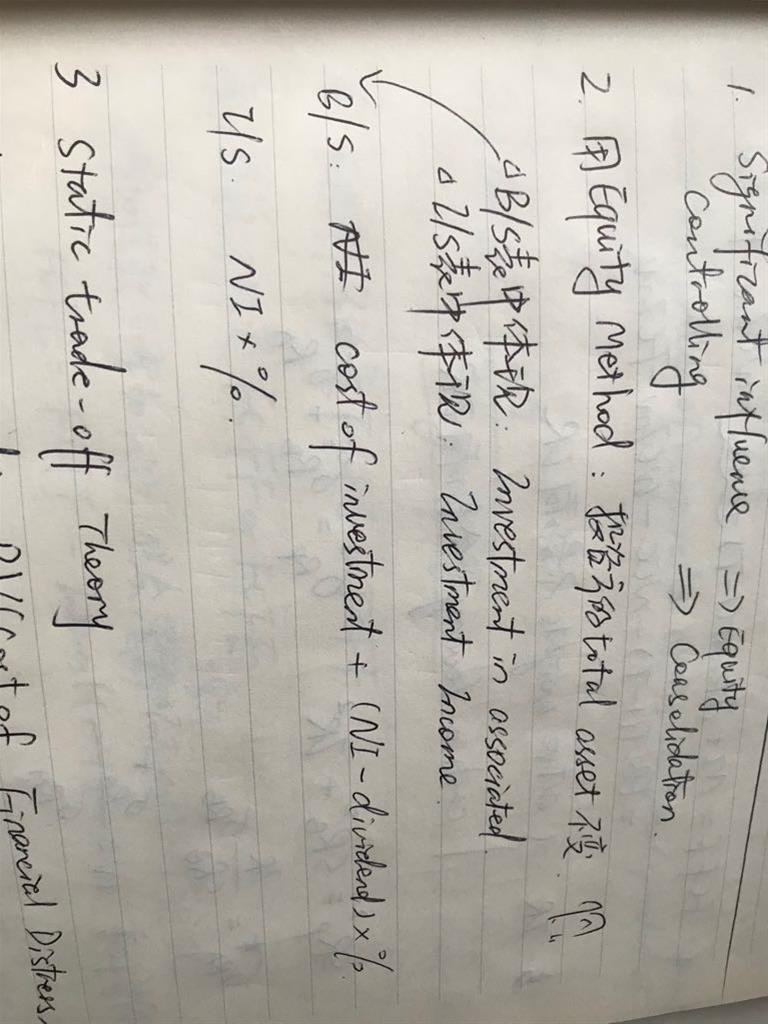 1. Significant influence ⇒ Equity
Controlling ⇒ Consolidation.
2. 用 Equity Method: 投资方的 total asset 不变.
△ B/S表中体现: Investment in associated.
△ I/S表中体现: Investment Income.
B/S: cost of investment + (NI - dividend) × %.
I/S. NI × %.
3 Static trade-off Theory
PV(Cost of Financial Distress